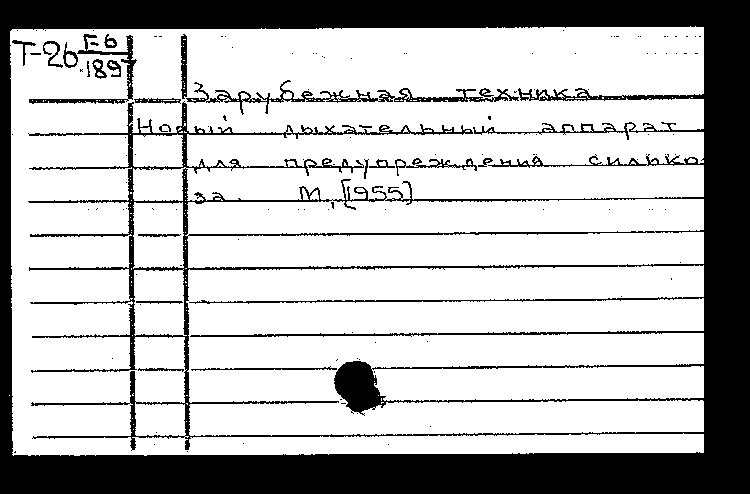 Т-26 Е6
1897
Зарубежная техника
Новый дыхательный аппарат
для предупреждения силико-
за. М., [1955]